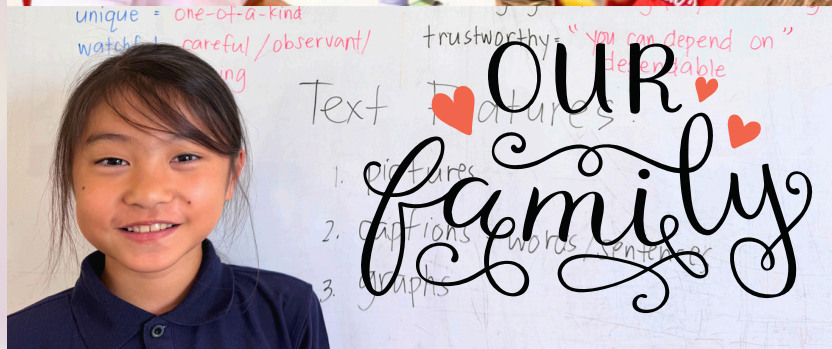 unique = one-of-a-kind
watchful careful/observant/
trustworthy = "you can depend on"
dependable
Text Features:
1. pictures
2. captions - words/sentences
3. graphs
OUR
family